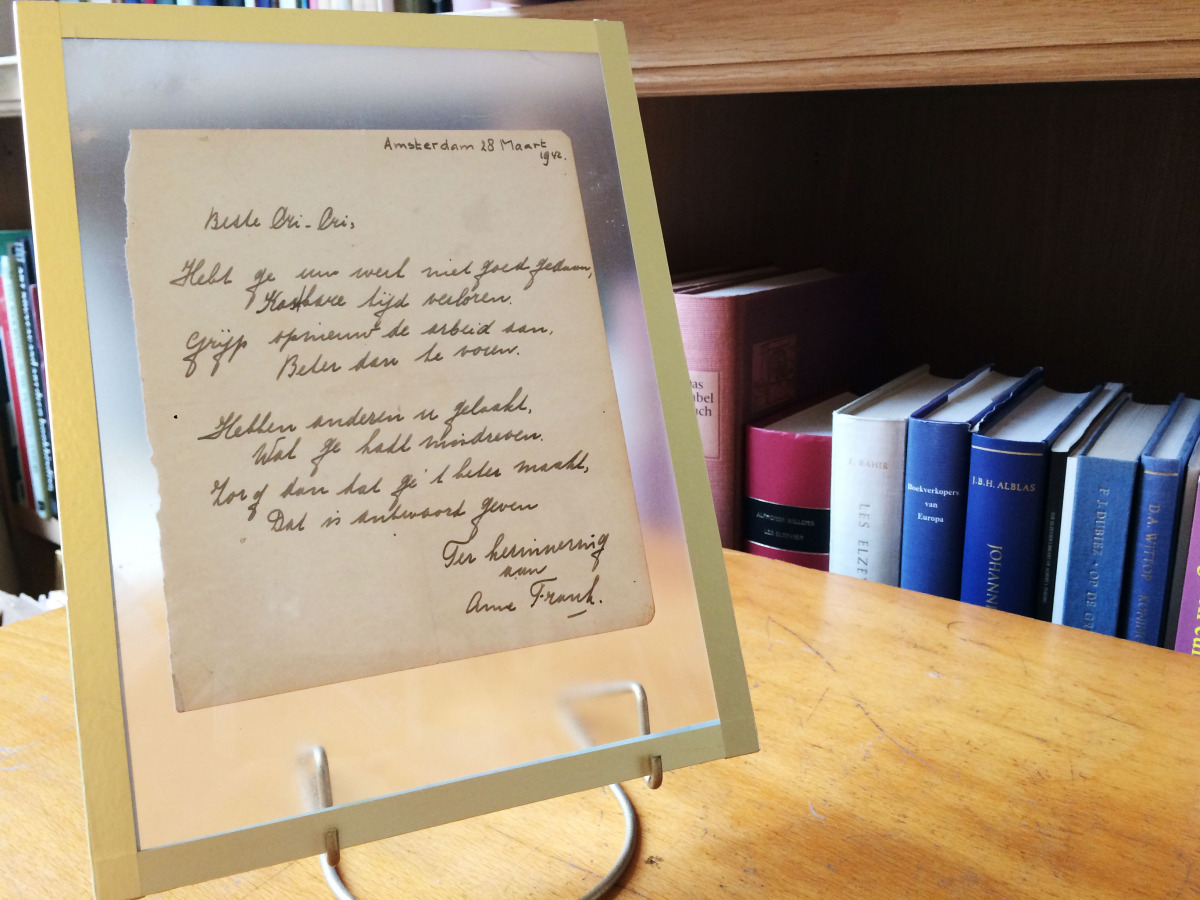 Amsterdam 28 Maart
1942.
Beste Cri-Cri,
Hebt ge uw werk niet goed gedaan,
Kostbare tijd verloren.
Grijp opnieuw de arbeid aan,
Beter dan te voren.
Hebben anderen u gelaakt,
Wat ge hadt misdreven.
Zorg dan dat ge 't beter maakt,
Dat is antwoord geven
Ter herinnering
aan
Anne Frank.
F. RAHIR
LES ELZE
Boekverkopers
van
Europa
J.B.H. ALBLAS
JOHANN
F. J. DUBIEZ · OP DE GR
D.A. WITTOP KONIN